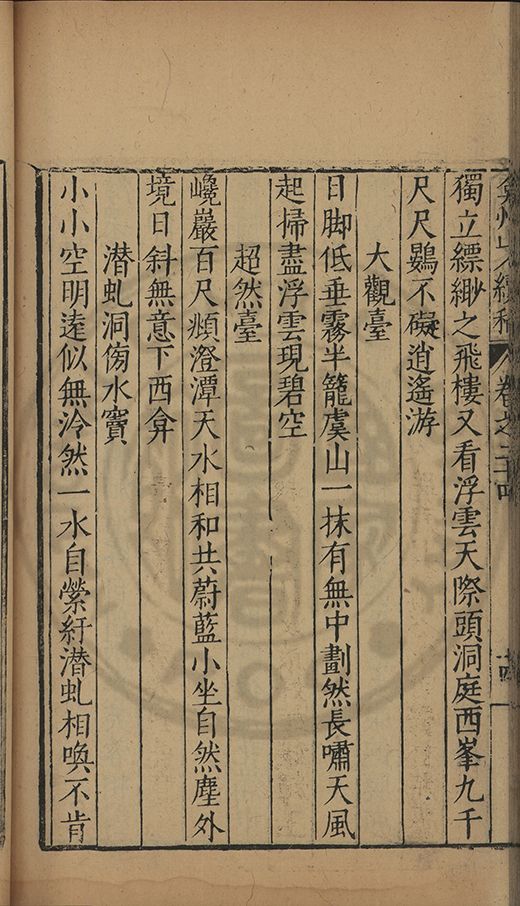 弇州山人續稿 卷之二十四 十四
獨立縹緲之飛樓又看浮雲天際頭洞庭西峯九千
尺尺鷃不礙逍遙游
大觀臺
日脚低垂霧半籠虞山一抹有無中劃然長嘯天風
起掃盡浮雲現碧空
超然臺
巉巖百尺頫澄潭天水相和共蔚藍小坐自然塵外
境日斜無意下西弇
潛虬洞傍水竇
小小空明遠似無泠然一水自縈紆潛虬相喚不肯